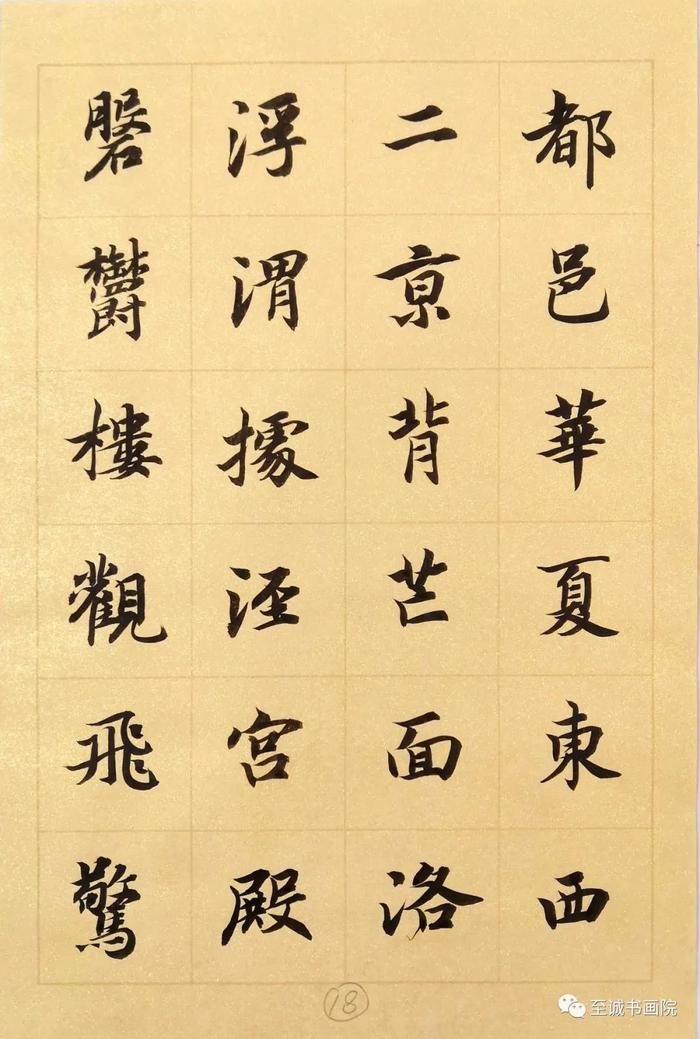 都邑華夏東西
二京背芒面洛
浮渭據涇宮殿
磐鬱樓觀飛驚
18
至诚书画院